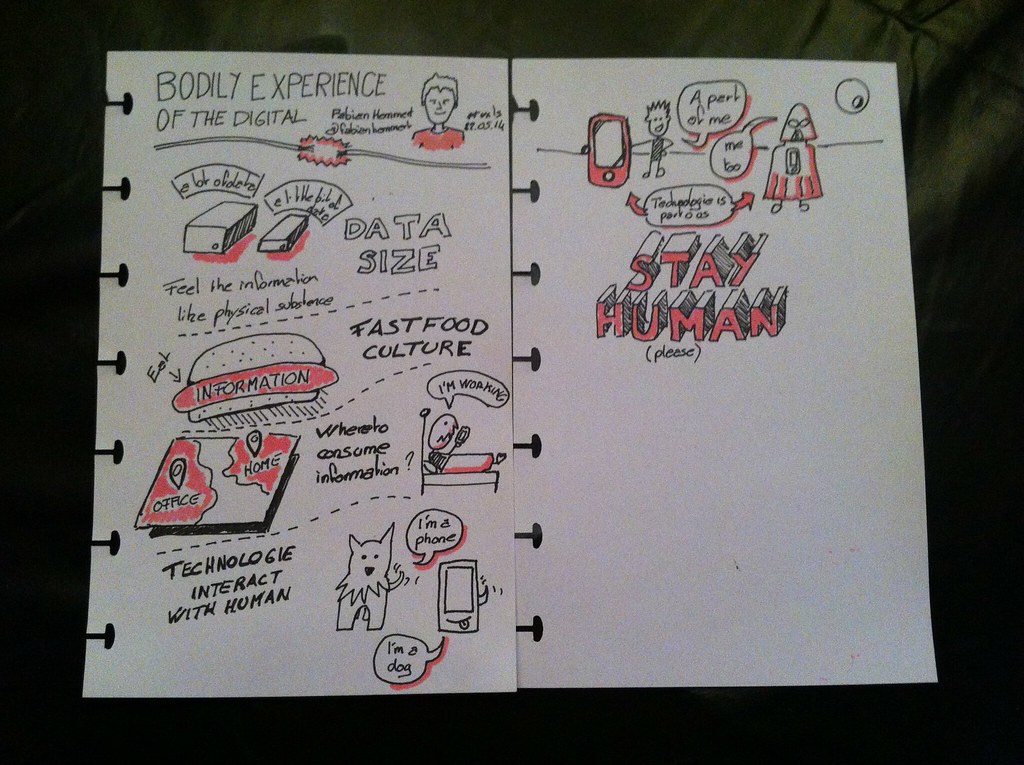 BODILY EXPERIENCE
OF THE DIGITAL
Fabien Hemmert
@fabienhemmert
a lot of data
a little bit of data
DATA
SIZE
Feel the information
like physical substance
FASTFOOD
CULTURE
INFORMATION
I'M WORKING
Where to
consume
information?
OFFICE
HOME
TECHNOLOGIE
INTERACT
WITH HUMAN
I'm a
phone
I'm a
dog
A part
of me
me
too
Technologie is
part of us
STAY
HUMAN
(please)